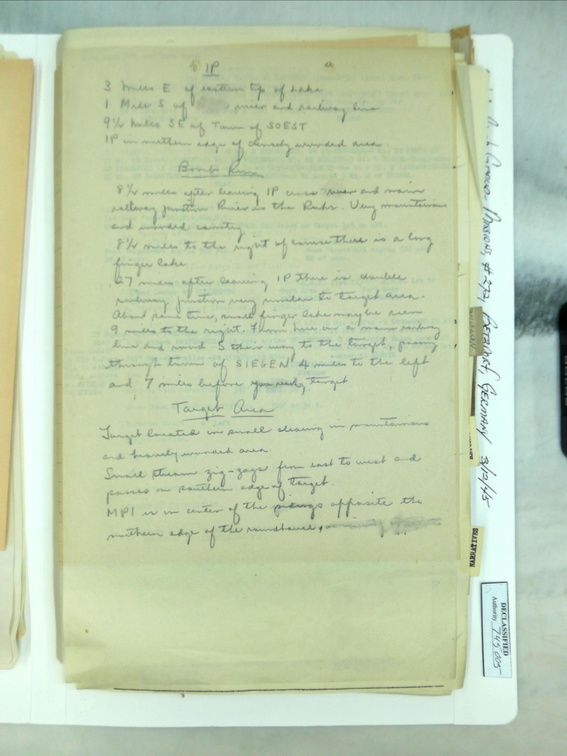 IP
3 Miles E of eastern tip of Lake
1 Miles S of river and railway line
9½ Miles SE of Town of SOEST
IP in northern edge of densely wooded area.
Bomb Run
8½ miles after leaving IP cross river and main
railway junction River is the Ruhr. Very mountainous
and wooded country
8½ miles to the right of course there is a long
finger lake
27 miles after leaving IP there is double
railway junction very similar to target area.
About same time, small finger lake may be seen
9 miles to the right. From here on a main railway
line and road S their way to the target, passing
through town of SIEGEN 4 miles to the left
and 7 miles before you reach target
Target Area
Target located in small clearing in mountainous
and heavily wooded area
Small stream zig-zags from east to west and
passes on southern edge of target
MPI is in center of the sidings opposite the
northern edge of the roundhouse.
Missions, #272, Germany 3/12/45
DECLASSIFIED
Authority 745005